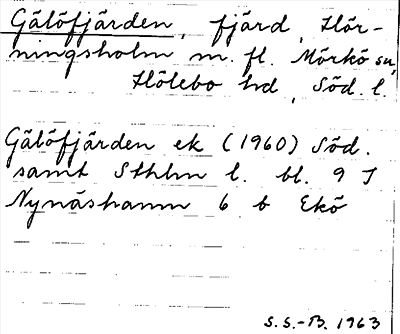 Gälöfjärden, fjärd, Hör-
ningsholm m. fl. Mörkö sn,
Hölebo hd, Söd. l.
Gälöfjärden ek (1960) Söd.
samt Sthlm l. bl. 9 I
Nynäshamn 6 b Ekö
S.S.-B. 1963